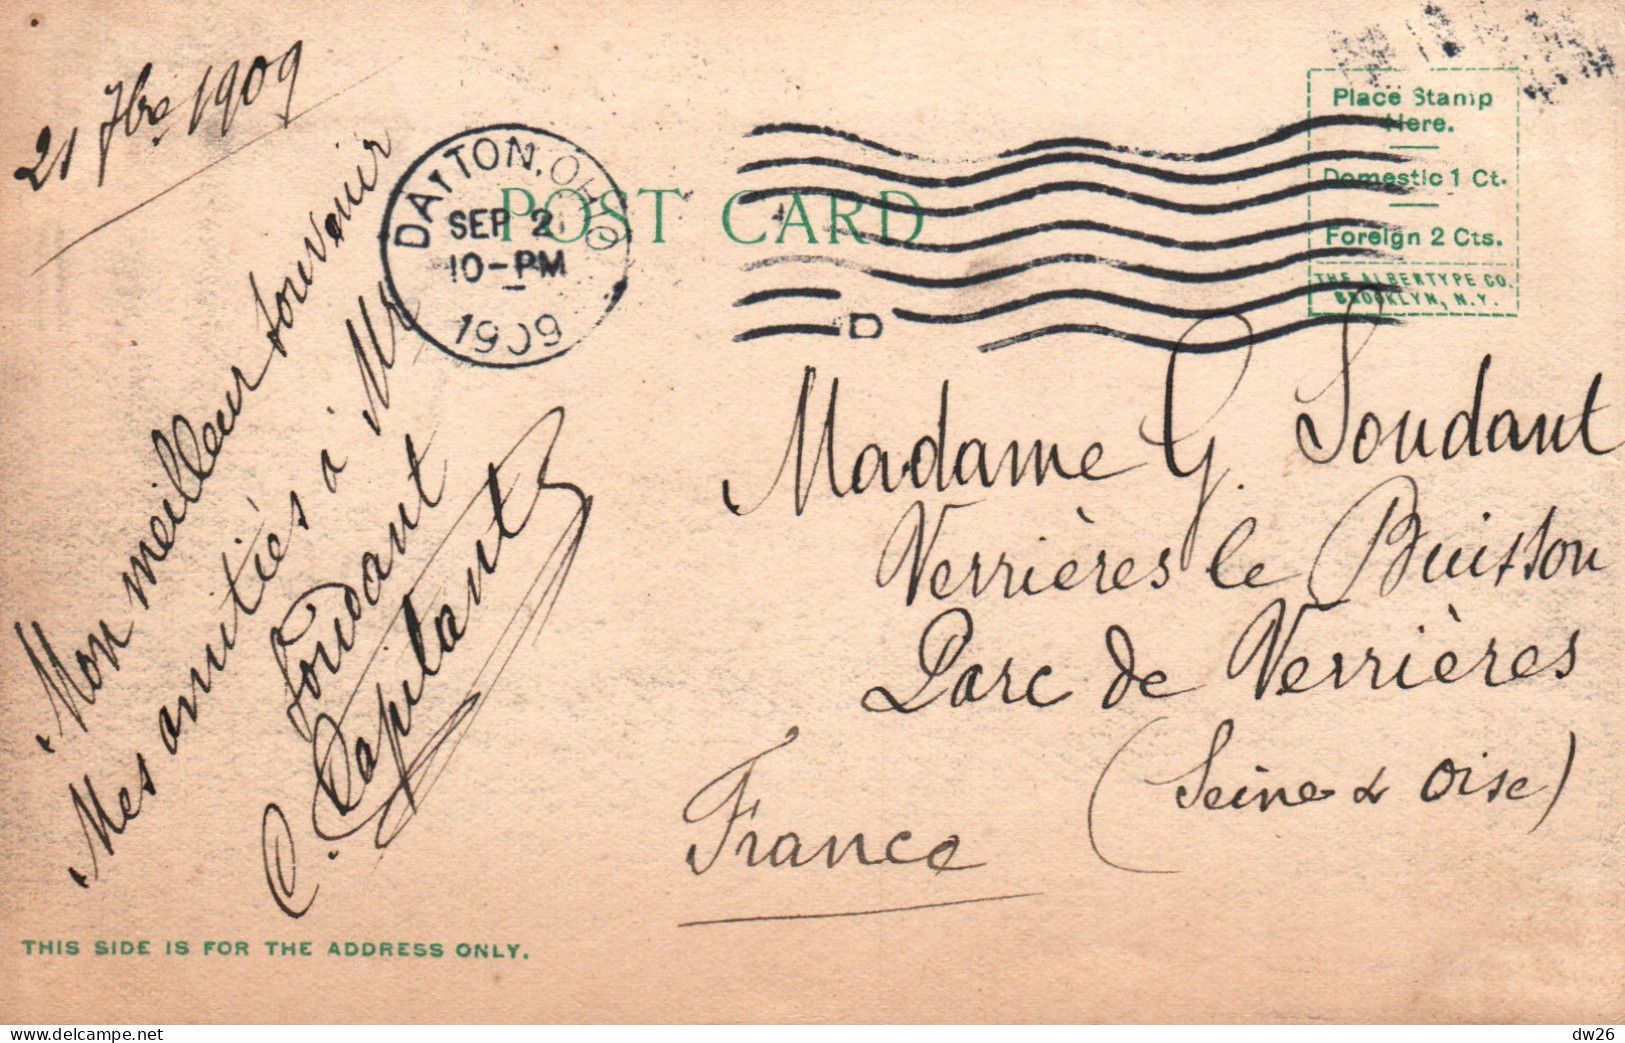 21 7bre 1909
Mon meilleur souvenir
Mes amitiés à Mr
Soudant
C. Capitant
DAYTON, OHIO
SEP 2
10-PM
1909
D
POST CARD
Place Stamp
Here.
Domestic 1 Ct.
Foreign 2 Cts.
THE ALBERTYPE CO.
BROOKLYN, N.Y.
Madame G. Soudant
Verrières le Buisson
Parc de Verrières
(Seine & Oise)
France
THIS SIDE IS FOR THE ADDRESS ONLY.
www.delcampe.net
dw26